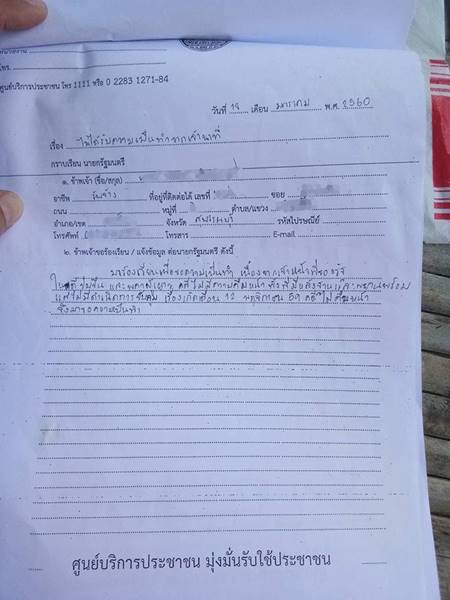 โทร.
ศูนย์บริการประชาชน โทร 1111 หรือ 0 2283 1271-84
วันที่ 19 เดือน มกราคม พ.ศ. 2560
เรื่อง ไม่ได้รับความเป็นธรรมจากเจ้าหน้าที่
กราบเรียน นายกรัฐมนตรี
๑. ข้าพเจ้า (ชื่อ/สกุล)
อาชีพ รับจ้าง ที่อยู่ที่ติดต่อได้ เลขที่ ซอย
ถนน หมู่ที่ ตำบล/แขวง
อำเภอ/เขต จังหวัด รหัสไปรษณีย์
โทรศัพท์ โทรสาร E-mail
๒. ข้าพเจ้าขอร้องเรียน / แจ้งข้อมูล ต่อนายกรัฐมนตรี ดังนี้
มาร้องเรียนเพื่อขอความเป็นธรรม เนื่องจากเจ้าหน้าที่ของรัฐ
ในคดีข่มขืน คดีไม่มีความคืบหน้า ทั้งที่มีหลักฐานและพยานพร้อม
แต่ไม่มีดำเนินการจับกุม เรื่องเกิดเดือน 12 พฤศจิกายน 59 คดีไม่คืบหน้า
จึงมาขอความเป็นธรรม
ศูนย์บริการประชาชน มุ่งมั่นรับใช้ประชาชน